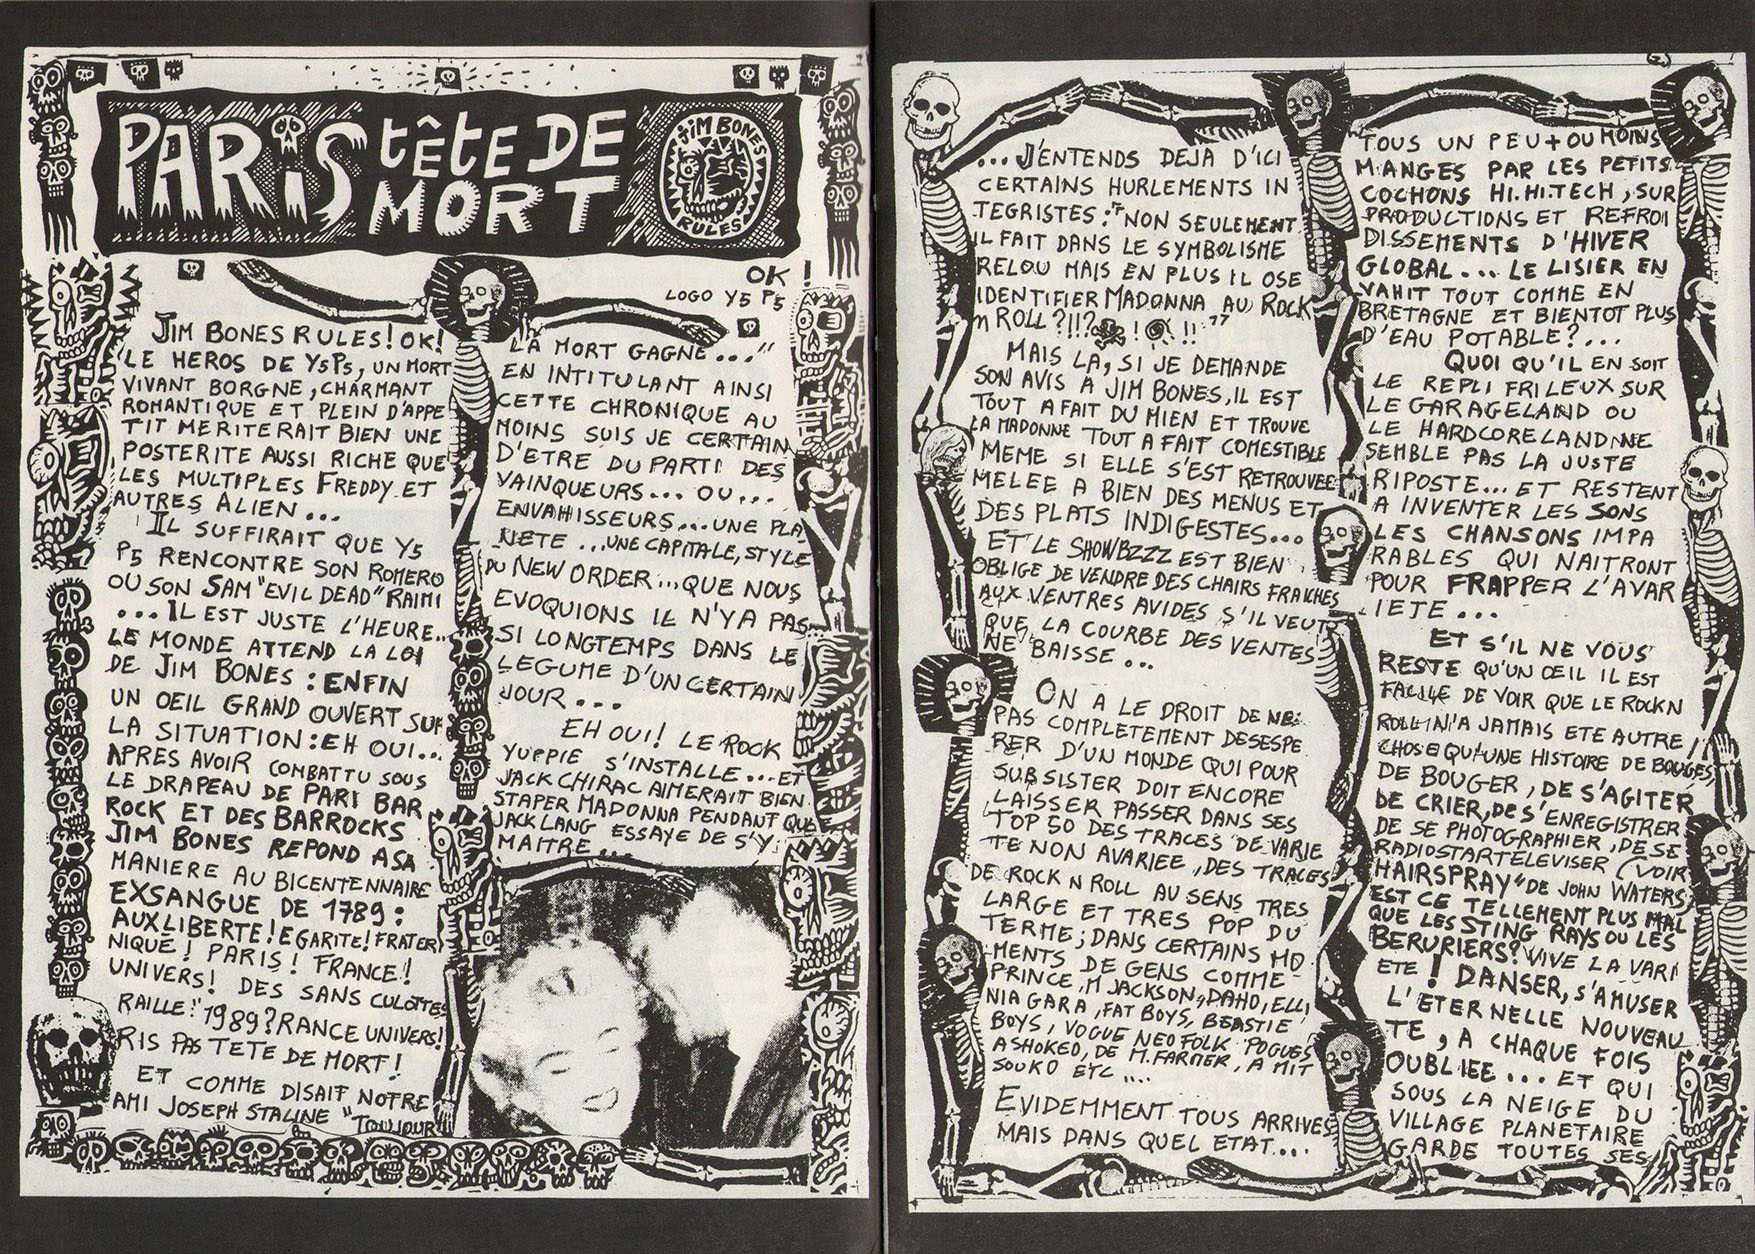 PARIS TÊTE DE
MORT
JIM BONES
RULES
OK !
LOGO Y5 P5
JIM BONES RULES! OK!
LE HEROS DE Y5P5, UN MORT
VIVANT BORGNE, CHARMANT
ROMANTIQUE ET PLEIN D'APPE
TIT MERITERAIT BIEN UNE
POSTERITE AUSSI RICHE QUE
LES MULTIPLES FREDDY ET
AUTRES ALIEN...
IL SUFFIRAIT QUE Y5
P5 RENCONTRE SON ROMERO
OU SON SAM "EVIL DEAD" RAIMI
...IL EST JUSTE L'HEURE..
LE MONDE ATTEND LA LOI
DE JIM BONES : ENFIN
UN OEIL GRAND OUVERT SUR
LA SITUATION : EH OUI...
APRES AVOIR COMBATTU SOUS
LE DRAPEAU DE PARI BAR
ROCK ET DES BARROCKS
JIM BONES REPOND A SA
MANIERE AU BICENTENNAIRE
EXSANGUE DE 1789 :
AUXLIBERTE! EGARITE! FRATER
NIQUE! PARIS! FRANCE!
UNIVERS! DES SANS CULOTTES
RAILLE:" 1989? RANCE UNIVERS!
RIS PAS TETE DE MORT!
ET COMME DISAIT NOTRE
AMI JOSEPH STALINE "TOUJOUR
LA MORT GAGNE..."
EN INTITULANT AINSI
CETTE CHRONIQUE AU
MOINS SUIS JE CERTAIN
D'ETRE DU PARTI DES
VAINQUEURS... OU...
ENVAHISSEURS...UNE PLA
NETE...UNE CAPITALE, STYLE
DU NEW ORDER...QUE NOUS
EVOQUIONS IL N'Y A PAS
SI LONGTEMPS DANS LE
LEGUME D'UN CERTAIN
JOUR...
EH OUI! LE ROCK
YUPPIE S'INSTALLE...ET
JACK CHIRAC AIMERAIT BIEN
STAPER MADONNA PENDANT QUE
JACK LANG ESSAYE DE S'Y
MAITRE...
...J'ENTENDS DEJA D'ICI
CERTAINS HURLEMENTS IN
TEGRISTES : "NON SEULEMENT
IL FAIT DANS LE SYMBOLISME
RELOU MAIS EN PLUS IL OSE
IDENTIFIER MADONNA AU ROCK
N ROLL?!!?☠!@!!"
MAIS LA, SI JE DEMANDE
SON AVIS A JIM BONES, IL EST
TOUT A FAIT DU MIEN ET TROUVE
LA MADONNE TOUT A FAIT COMESTIBLE
MEME SI ELLE S'EST RETROUVEE
MELEE A BIEN DES MENUS ET
DES PLATS INDIGESTES...
ET LE SHOWBZZZ EST BIEN
OBLIGE DE VENDRE DES CHAIRS FRAICHES
AUX VENTRES AVIDES S'IL VEUT
QUE LA COURBE DES VENTES
NE BAISSE...
ON A LE DROIT DE NE
PAS COMPLETEMENT DESESPE
RER D'UN MONDE QUI POUR
SUBSISTER DOIT ENCORE
LAISSER PASSER DANS SES
TOP 50 DES TRACES DE VARIE
TE NON AVARIEE, DES TRACES
DE ROCK N ROLL AU SENS TRES
LARGE ET TRES POP DU
TERME; DANS CERTAINS MO
MENTS DE GENS COMME
PRINCE, M JACKSON, DAHO, ELLI,
NIAGARA, FAT BOYS, BEASTIE
BOYS, VOGUE NEO FOLK POGUES
A SHOKED, DE M. FARMER, A MIT
SOUKO ETC....
EVIDEMMENT TOUS ARRIVES
MAIS DANS QUEL ETAT....
TOUS UN PEU + OU MOINS
MANGES PAR LES PETITS
COCHONS HI.HI.TECH, SUR
PRODUCTIONS ET REFROI
DISSEMENTS D'HIVER
GLOBAL... LE LISIER EN
VAHIT TOUT COMME EN
BRETAGNE ET BIENTOT PLUS
D'EAU POTABLE?...
QUOI QU'IL EN SOIT
LE REPLI FRILEUX SUR
LE GARAGELAND OU
LE HARDCORELAND NE
SEMBLE PAS LA JUSTE
RIPOSTE... ET RESTENT
A INVENTER LES SONS
LES CHANSONS IMPA
RABLES QUI NAITRONT
POUR FRAPPER L'AVAR
IETE...
ET S'IL NE VOUS
RESTE QU'UN OEIL IL EST
FACILE DE VOIR QUE LE ROCK N
ROLL N'A JAMAIS ETE AUTRE
CHOSE QU'UNE HISTOIRE DE BOUGES,
DE BOUGER, DE S'AGITER
DE CRIER, DE S'ENREGISTRER
DE SE PHOTOGRAPHIER, DE SE
RADIOSTARTELEVISER (VOIR
HAIRSPRAY" DE JOHN WATERS,
EST CE TELLEMENT PLUS MAL
QUE LES STING RAYS OU LES
BERURIERS? VIVE LA VARI
ETE! DANSER, S'AMUSER
L'ETERNELLE NOUVEAU
TE, A CHAQUE FOIS
OUBLIEE... ET QUI
SOUS LA NEIGE DU
VILLAGE PLANETAIRE
GARDE TOUTES SES